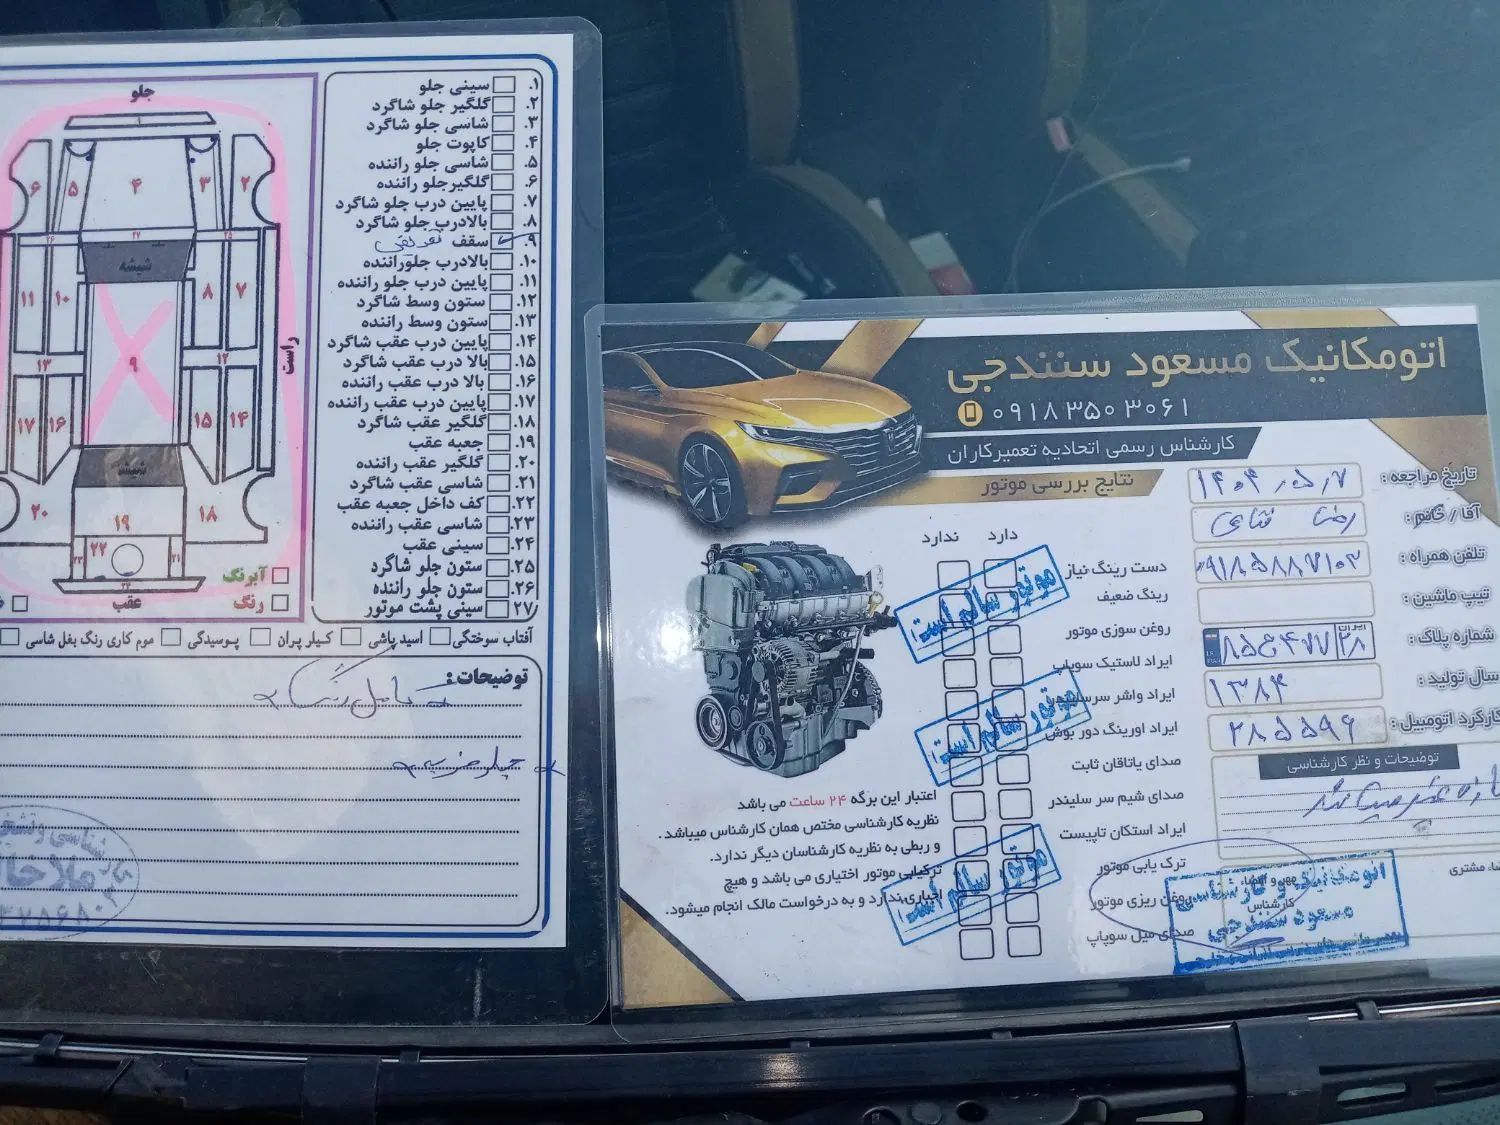 جلو
۱. سینی جلو
۲. گلگیر جلو شاگرد
۳. شاسی جلو شاگرد
۴. کاپوت جلو
۵. شاسی جلو راننده
۶. گلگیرجلو راننده
۷. پایین درب جلو شاگرد
۸. بالادرب جلو شاگرد
۹. سقف
۱۰. بالادرب جلوراننده
۱۱. پایین درب جلو راننده
۱۲. ستون وسط شاگرد
۱۳. ستون وسط راننده
۱۴. پایین درب عقب شاگرد
۱۵. بالا درب عقب شاگرد
۱۶. بالا درب عقب راننده
۱۷. پایین درب عقب راننده
۱۸. گلگیر عقب شاگرد
۱۹. جعبه عقب
۲۰. گلگیر عقب راننده
۲۱. شاسی عقب شاگرد
۲۲. کف داخل جعبه عقب
۲۳. شاسی عقب راننده
۲۴. سینی عقب
۲۵. ستون جلو شاگرد
۲۶. ستون جلو راننده
۲۷. سینی پشت موتور
راست
شیشه
شیشه
عقب
آبرنگ
رنگ
آفتاب سوختگی اسید پاشی کیلر پران پوسیدگی موم کاری رنگ بغل شاسی
توضیحات:
کامل رنگ
اتومکانیک مسعود سنندجی
۰۹۱۸ ۳۵۰ ۳۰۶۱
کارشناس رسمی اتحادیه تعمیرکاران
نتایج بررسی موتور
تاریخ مراجعه : ۱۴۰۴/۰۵/۷
آقا / خانم : رضا
تلفن همراه : ۰۹۱۸۵۸۸۷۱۰۳
تیپ ماشین :
شماره پلاک : ۸۵ج۴۷۷ ایران ۲۸
سال تولید : ۱۳۸۴
کارکرد اتومبیل : ۲۸۵۵۹۶
توضیحات و نظر کارشناسی
دارد ندارد
دست رینگ نیاز
رینگ ضعیف
روغن سوزی موتور
ایراد لاستیک سوپاپ
ایراد واشر سرسیلندر
ایراد اورینگ دور بوش
صدای یاتاقان ثابت
صدای شیم سر سلیندر
ایراد استکان تاپیت
ترک یابی موتور
روغن ریزی موتور
صدای میل سوپاپ
موتور سالم است
موتور سالم است
موتور سالم است
اعتبار این برگه ۲۴ ساعت می باشد
نظریه کارشناسی مختص همان کارشناس میباشد.
و ربطی به نظریه کارشناسان دیگر ندارد.
ترکیابی موتور اختیاری می باشد و هیچ
اجباری ندارد و به درخواست مالک انجام میشود.
مهر و امضاء
کارشناس
مشتری
اتومکانیک و کارشناسی
مسعود سنندجی